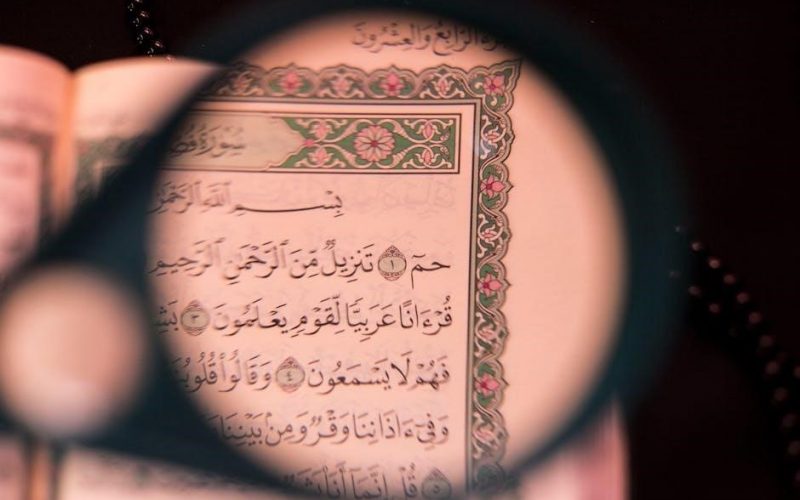 الرابع والعشرون
سُورَةُ فُصِّ
بِسْمِ ٱللَّهِ ٱلرَّحْمَٰنِ
حمٓ ١ تَنزِيلٌ مِّنَ ٱلرَّحْمَٰنِ ٱلرَّحِيمِ
قُرْءَانًا عَرَبِيًّا لِّقَوْمٍ يَعْلَمُونَ ٣ بَشِ
فَهُمْ لَا يَسْمَعُونَ ٤ وَقَالُوا۟ قُلُوبُنَ
وَفِىٓ ءَاذَانِنَا وَقْرٌ وَمِنۢ بَيْنِنَا
٥ قُلْ إِنَّمَآ أَنَا۠ بَشَ